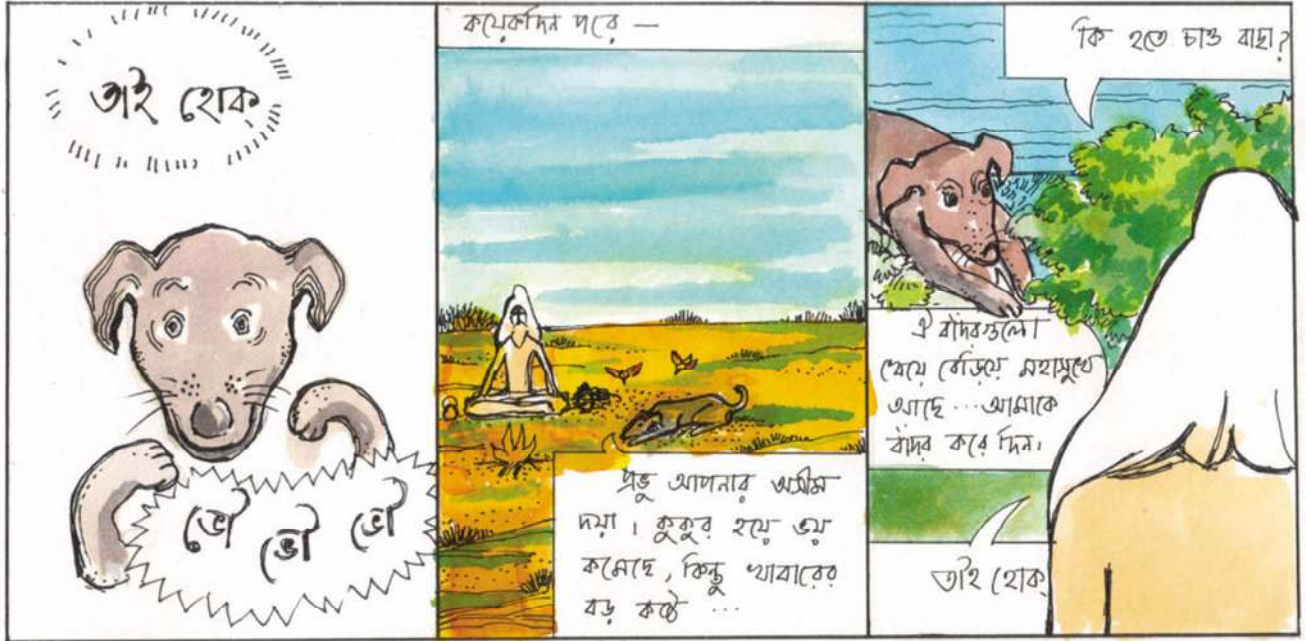 তাই হোক
ভৌ ভৌ ভৌ
কয়েকদিন পরে —
প্রভু আপনার অসীম
দয়া। কুকুর হয়ে ভয়
কমেছে, কিন্তু খাবারের
বড় কষ্ট ...
কি হতে চাও বাছা?
ঐ বাঁদরগুলো
খেয়ে বেড়িয়ে মহাসুখে
আছে ... আমাকে
বাঁদর করে দিন।
তাই হোক্